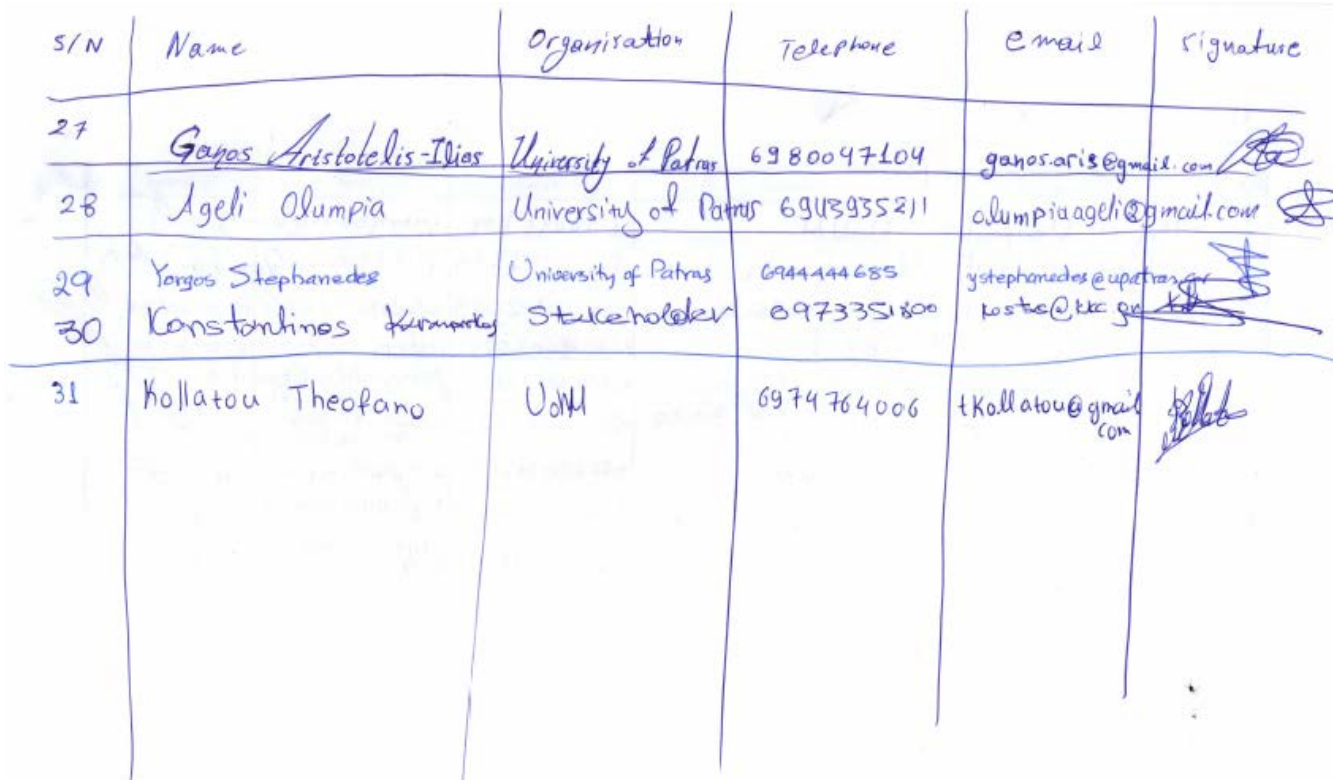 S/N Name Organisation Telephone email signature
27 Ganos Aristotelis-Ilias University of Patras 6980047104 ganos.aris@gmail.com
28 Ageli Olumpia University of Patras 6943935211 olumpiaageli@gmail.com
29 Yorgos Stephanedes University of Patras 6944444685 ystephanedes@upatras.gr
30 Konstantinos Stakeholder 6973351800 kostas@kkc.gr
31 Kollatou Theofano UoWM 6974764006 tkollatou@gmail
com